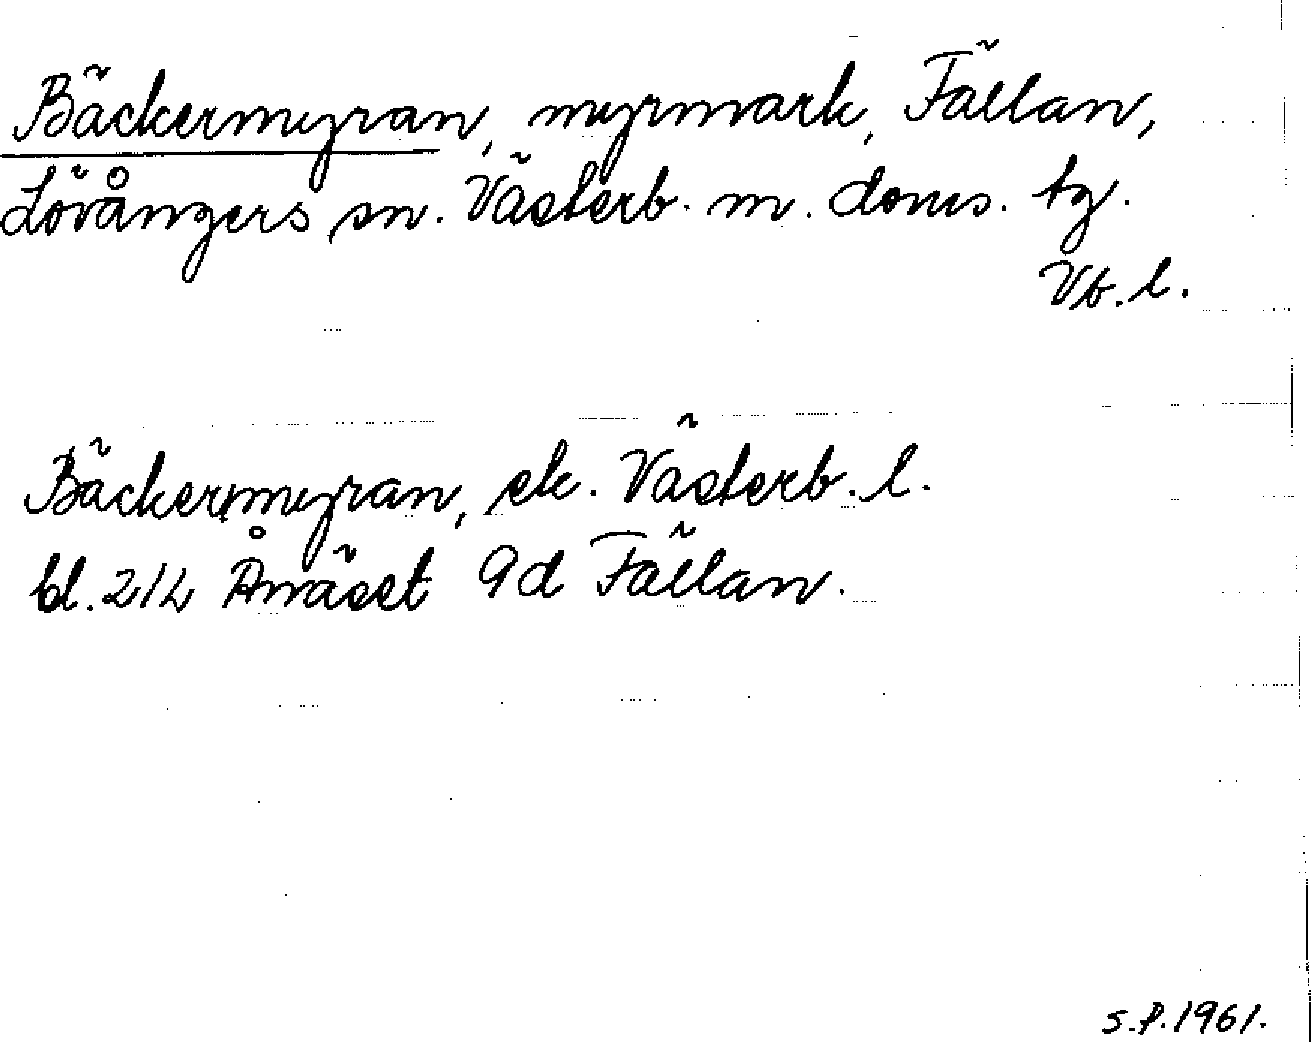 Bäckermyran, myrmark, Fällan,
Lövångers sn. Västerb. m. doms. tg.
Vb. l.
Bäckermyran, ek. Västerb. l.
bl. 21L Ånäset 9d Fällan.
S.P. 1961.